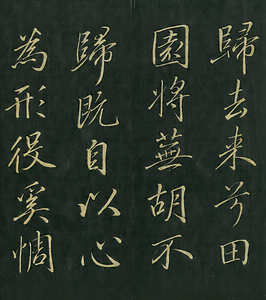 歸去来兮田
園將蕪胡不
歸既自以心
為形役奚惆